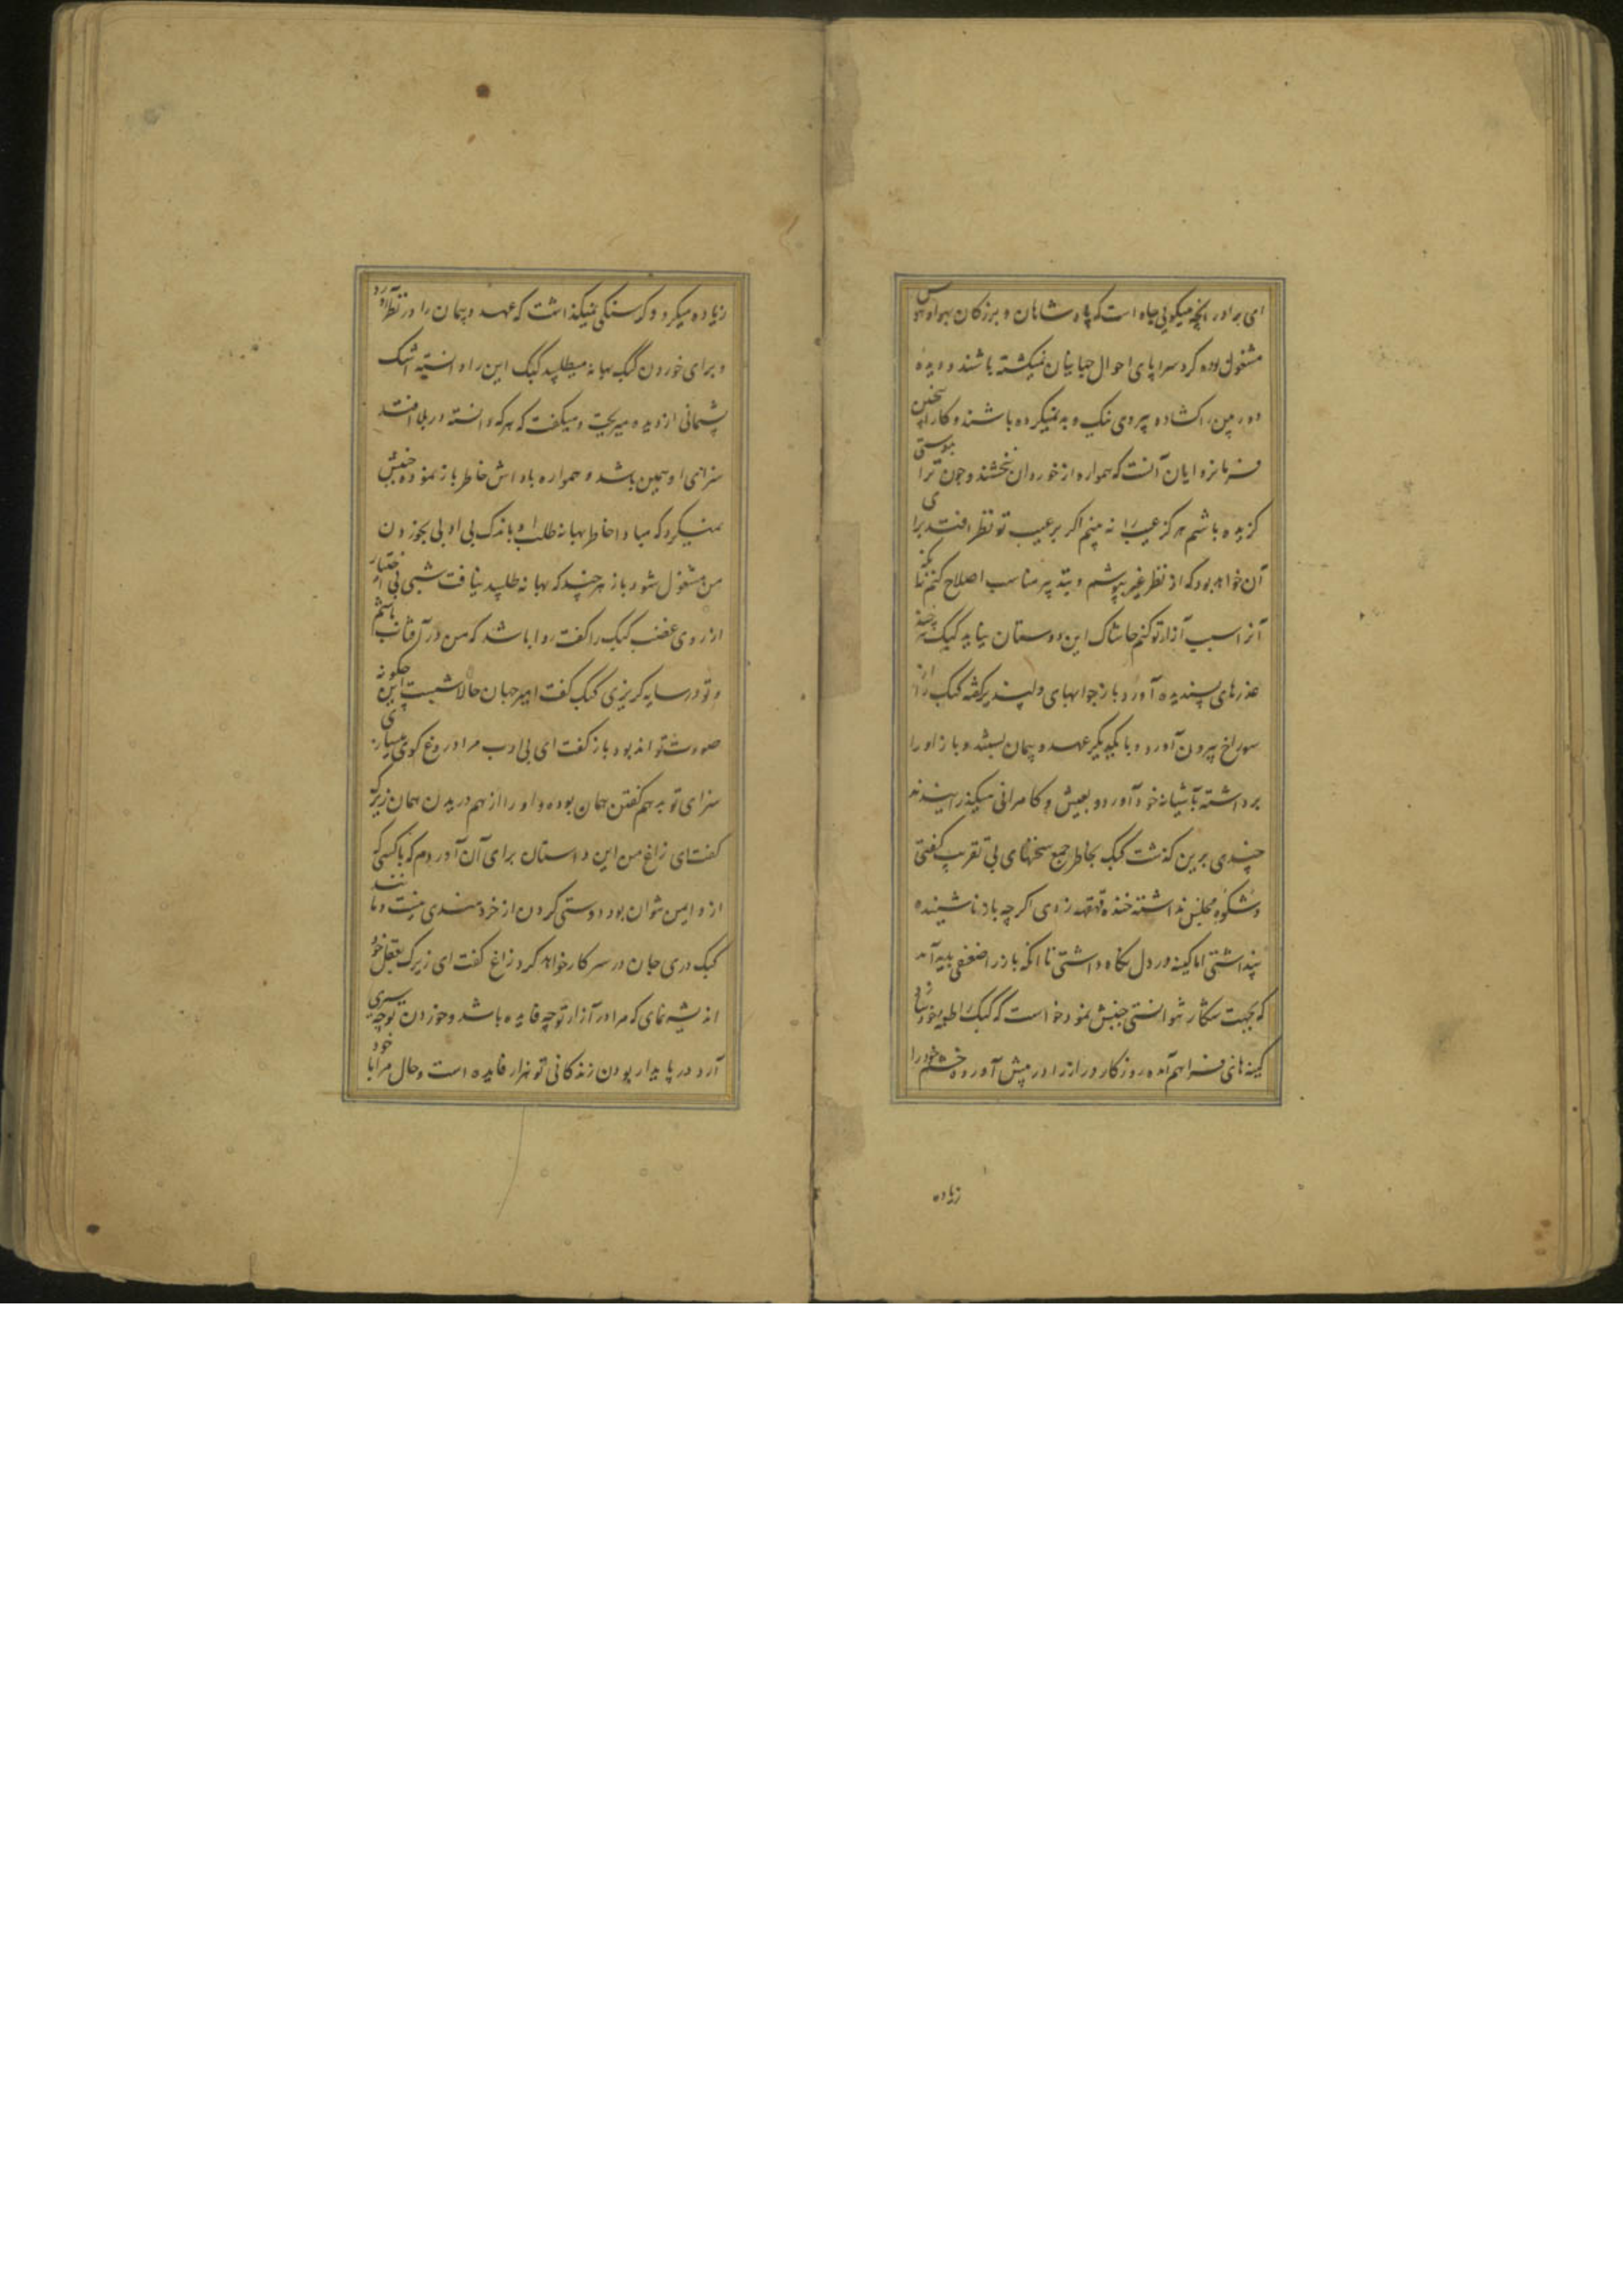 ای برادر انچه میکویی بجاه است که پادشاهان و بزرکان بهوا و هوس
مشغول بوده کرد سراپای احوال جهانیان نمیکشته باشند و دیده
دوربین را کشاده پیروی نیک و بد نمیکرده باشند و کار اینچنین
فرمانروایان آنست که همواره از خوردان نبخشند و چون ترا بدوستی
کزیده باشم هرکز عیب ترا نه بینم اکر بر عیب تو نظر افتد برای
آن خواهد بود که از نظر غیر بپوشم و بتدبیر مناسب اصلاح کنم نه آنکه
آنرا سبب آزار تو کنم حاشاک این دوستان بیاید کبک هرچند
عذرهای پسندیده آورد باز جوابهای دلپذیر کفته کبک را از
سوراخ بیرون آورد و با یکدیکر عهد و پیمان بستند و باز او را
برداشته بآشیانه خود آورد و بعیش و کامرانی میکذرانیدند
چندی برین کذشت کبک بخاطر جمع سخنهای بی تقریب کفتی
و شکوه مجلس نداشته خنده قهقهه زدی اکرچه باز ناشنیده
پنداشتی اما کینه در دل نکاه داشتی تا انکه باز را ضعفی پدید آمد
که بجهت شکار نتوانستی جنبش نمود خواست که کبک را طعمه خود سازد
کینه های فراهم آمده روزکار دراز را در پیش آورده خشم خود را
زیاده
زیاده میکرد و کرسنکی نمیکذاشت که عهد و پیمان را در نظر آورد
و برای خوردن کبک بهانه میطلبید کبک این را دانسته اشک
پشیمانی از دیده میریخت و میکفت که هر که دانسته در بلا افتد
سزای او همین باشد و همواره پاداش خاطر باز نموده جنبش
نمیکرد که مبادا خاطر بهانه طلب او باندک بی ادبی بخوردن
من مشغول شود باز هر چند که بهانه طلبید نیافت شبی بی اختیار
از روی غضب کبک را کفت روا باشد که من در آفتاب باشم
و تو در سایه کریزی کبک کفت امیر جهان حالا شبست این چکونه
صورت تواند بود باز کفت ای بی ادب مرا دروغ کوی میسازی
سزای تو بهم کفتن همان بوده و او را از هم دریدن همان زیرک
کفت ای زاغ من این داستان برای آن آوردم که با کسی که
ازو ایمن نتوان بود دوستی کردن از خردمندی نیست و مانند
کبک دری جان در سر کار خواهد کرد زاغ کفت ای زیرک بعقل خود
اندیشه نمای که مرا در آزار تو چه فایده باشد و خوردن تو چه سیری
آرد در پایدار بودن زندکانی تو هزار فایده است و حال مرا با خود